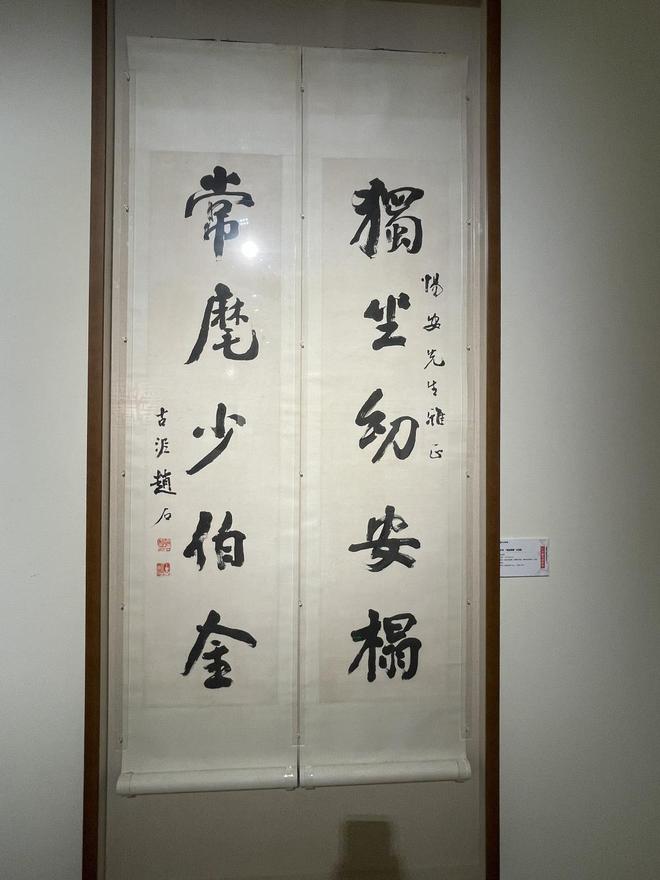 獨坐幼安榻
惕安先生雅正
常麾少伯金
古泥趙石